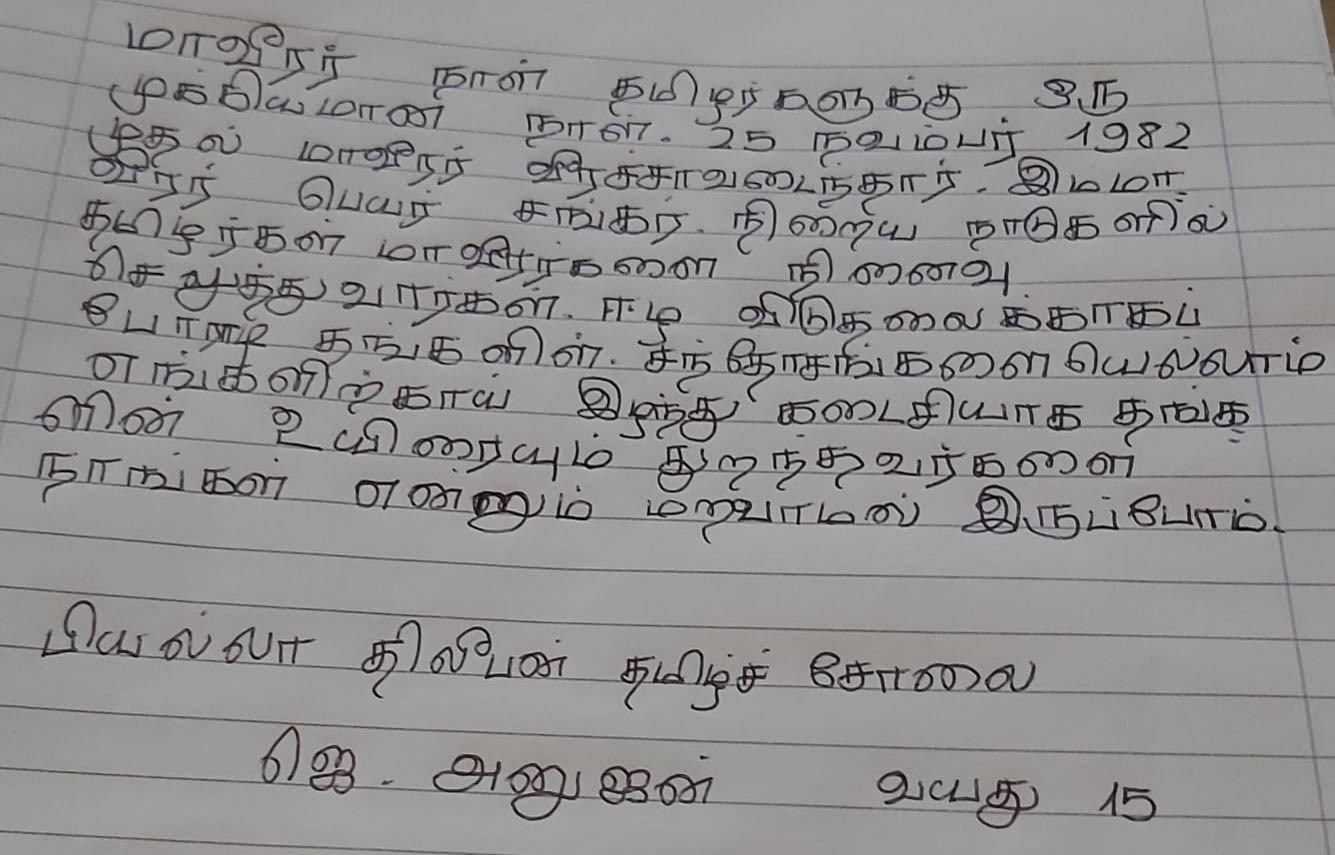 மாவீரர் நாள் தமிழர்களுக்கு ஒரு
முக்கியமான நாள். 25 நவம்பர் 1982
முதல் மாவீரர் வீரச்சாவடைந்தார். இம்மா
வீரர் பெயர் சங்கர். நிறைய நாடுகளில்
தமிழர்கள் மாவீரர்களை நினைவு
செலுத்துவார்கள். ஈழ விடுதலைக்காகப்
போராடி தங்களின். சந்தோசங்களையெல்லாம்
எங்களிற்காய் இழந்து கடைசியாக தங்க
ளின் உயிரையும் துறந்தவர்களை
நாங்கள் என்னும் மறவாமல் இருப்போம்.
பியல்லா திலீபன் தமிழ்ச் சோலை
ஜெ. அனுஜன் வயது 15